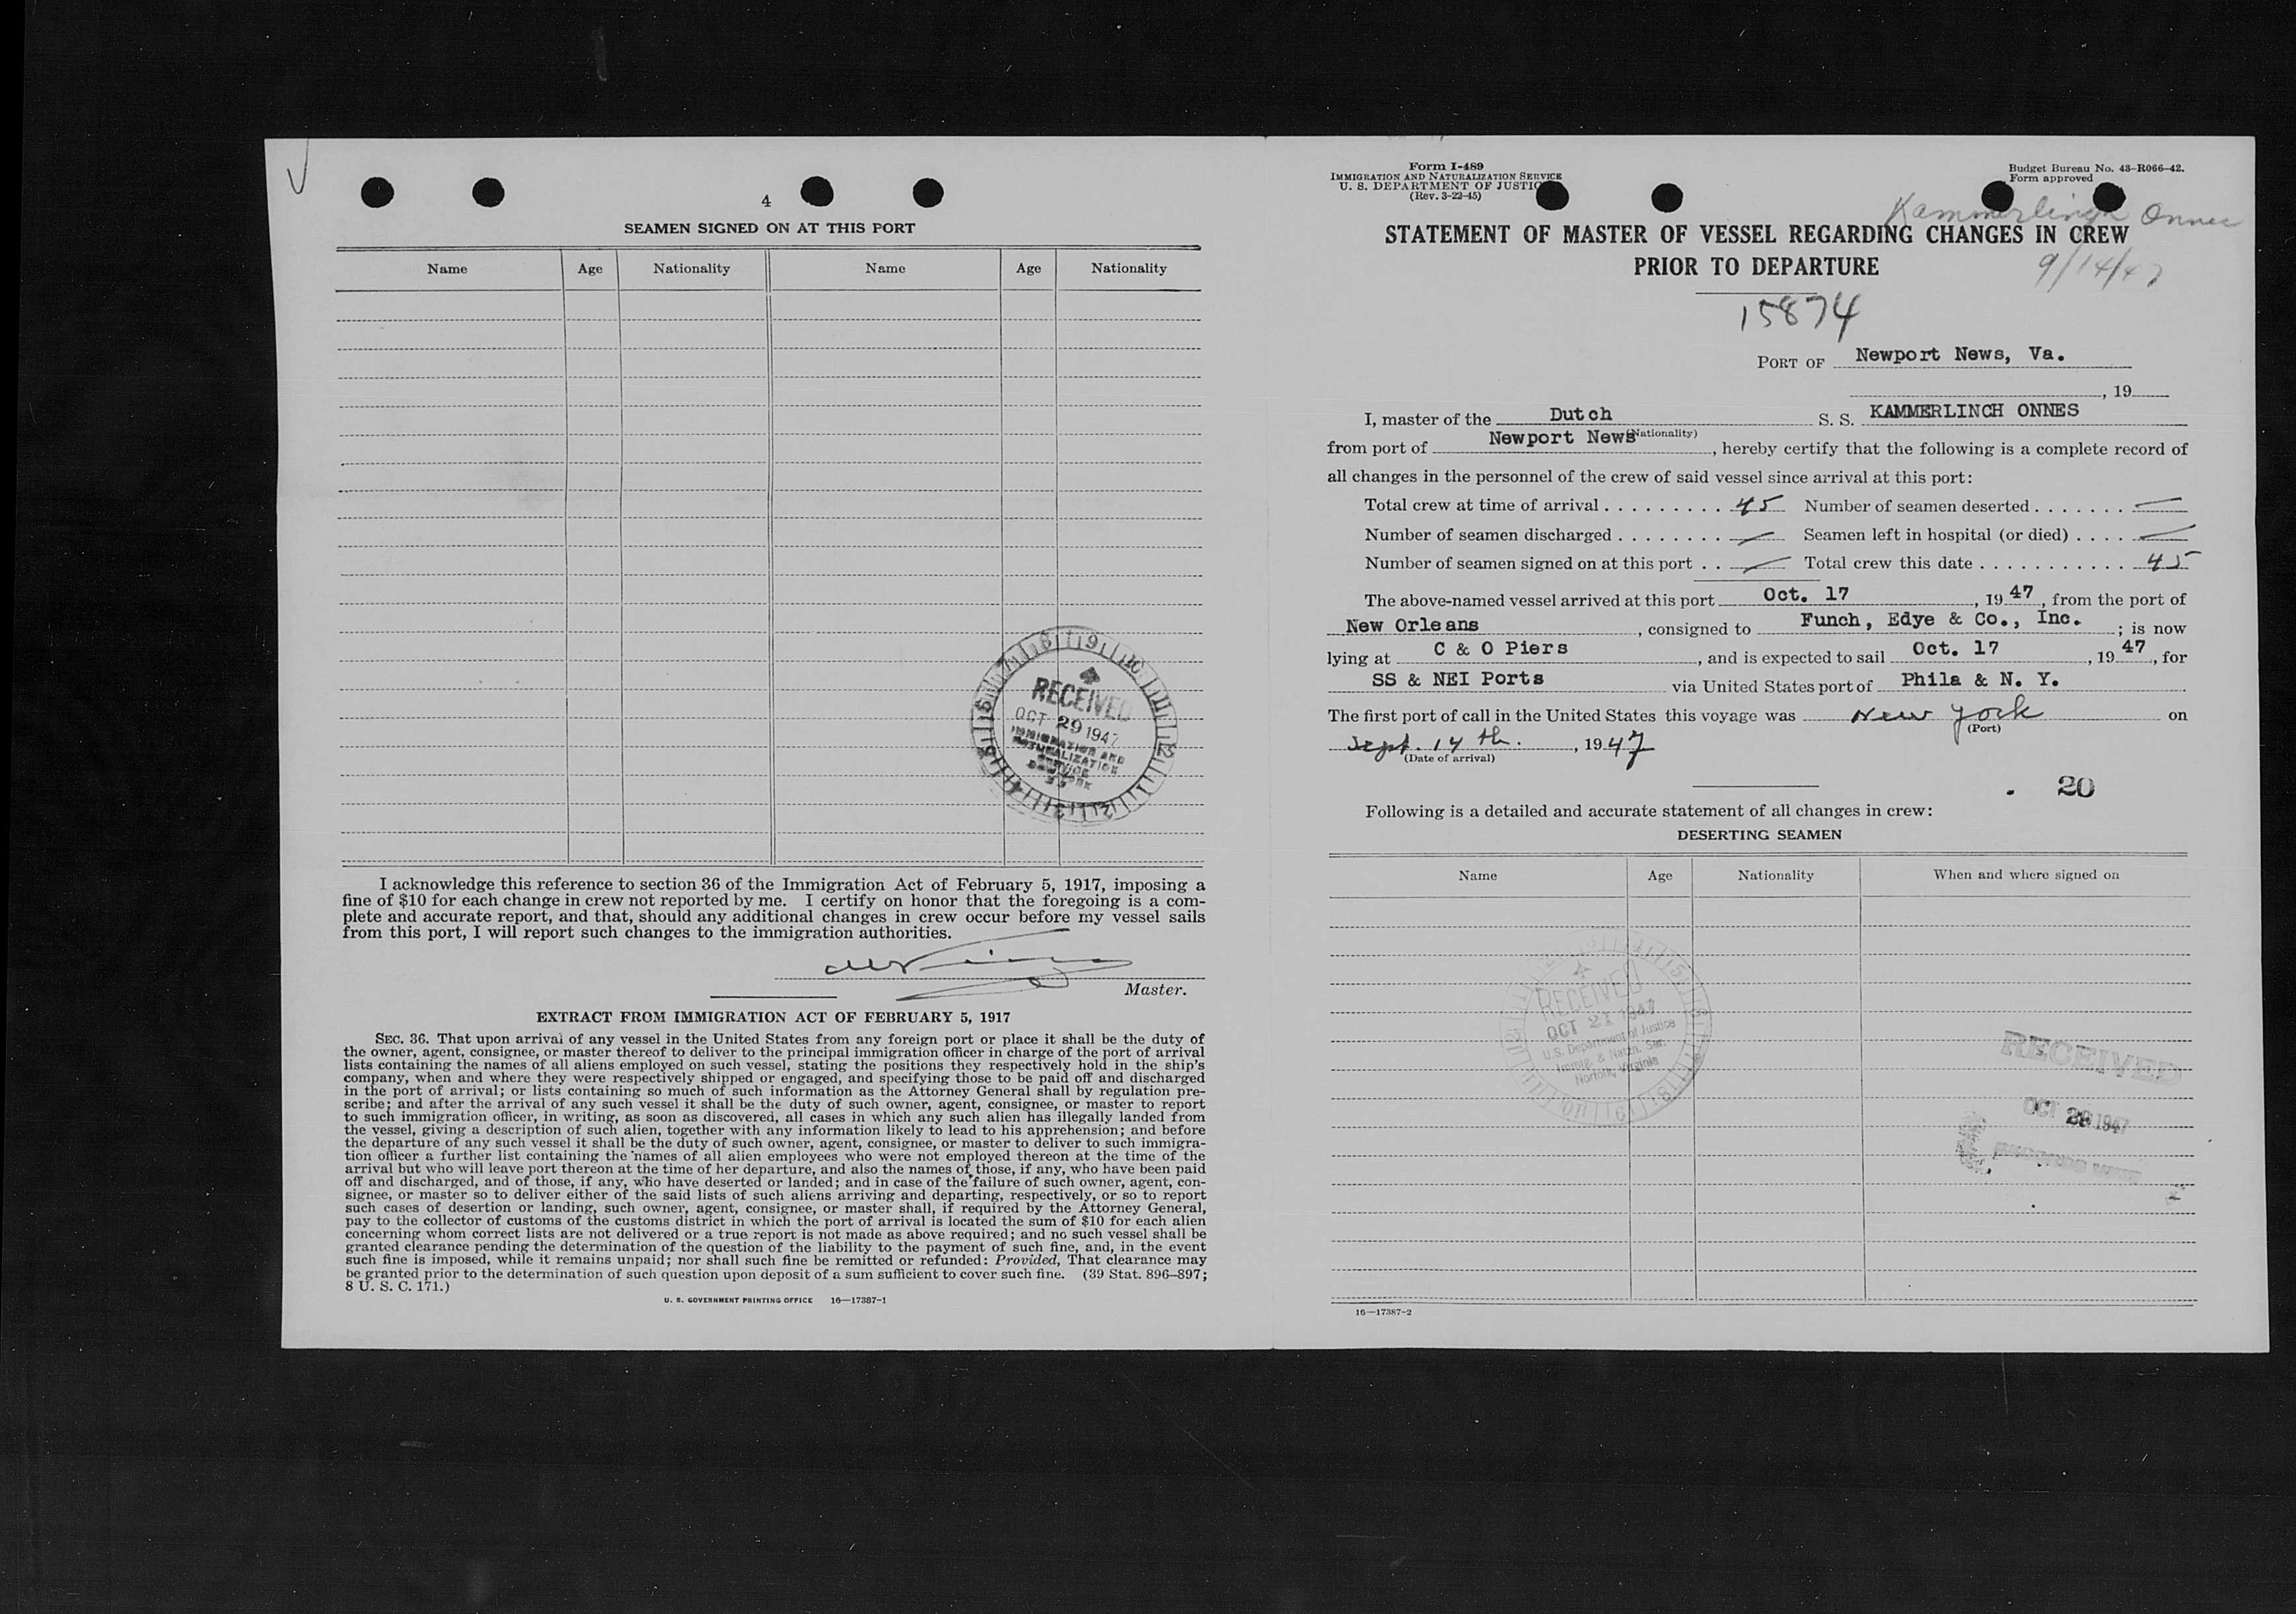 4
SEAMEN SIGNED ON AT THIS PORT
Name Age Nationality Name Age Nationality
RECEIVED
OCT 29 1947
IMMIGRATION AND
NATURALIZATION
SERVICE
I acknowledge this reference to section 36 of the Immigration Act of February 5, 1917, imposing a
fine of $10 for each change in crew not reported by me. I certify on honor that the foregoing is a com-
plete and accurate report, and that, should any additional changes in crew occur before my vessel sails
from this port, I will report such changes to the immigration authorities.
Master.
EXTRACT FROM IMMIGRATION ACT OF FEBRUARY 5, 1917
SEC. 36. That upon arrival of any vessel in the United States from any foreign port or place it shall be the duty of
the owner, agent, consignee, or master thereof to deliver to the principal immigration officer in charge of the port of arrival
lists containing the names of all aliens employed on such vessel, stating the positions they respectively hold in the ship's
company, when and where they were respectively shipped or engaged, and specifying those to be paid off and discharged
in the port of arrival; or lists containing so much of such information as the Attorney General shall by regulation pre-
scribe; and after the arrival of any such vessel it shall be the duty of such owner, agent, consignee, or master to report
to such immigration officer, in writing, as soon as discovered, all cases in which any such alien has illegally landed from
the vessel, giving a description of such alien, together with any information likely to lead to his apprehension; and before
the departure of any such vessel it shall be the duty of such owner, agent, consignee, or master to deliver to such immigra-
tion officer a further list containing the names of all alien employees who were not employed thereon at the time of the
arrival but who will leave port thereon at the time of her departure, and also the names of those, if any, who have been paid
off and discharged, and of those, if any, who have deserted or landed; and in case of the failure of such owner, agent, con-
signee, or master so to deliver either of the said lists of such aliens arriving and departing, respectively, or so to report
such cases of desertion or landing, such owner, agent, consignee, or master shall, if required by the Attorney General,
pay to the collector of customs of the customs district in which the port of arrival is located the sum of $10 for each alien
concerning whom correct lists are not delivered or a true report is not made as above required; and no such vessel shall be
granted clearance pending the determination of the question of the liability to the payment of such fine, and, in the event
such fine is imposed, while it remains unpaid; nor shall such fine be remitted or refunded: Provided, That clearance may
be granted prior to the determination of such question upon deposit of a sum sufficient to cover such fine. (39 Stat. 896–897;
8 U. S. C. 171.)
U. S. GOVERNMENT PRINTING OFFICE 16—17387-1
Form I-489
IMMIGRATION AND NATURALIZATION SERVICE
U. S. DEPARTMENT OF JUSTIC
(Rev. 3-22-45)
Budget Bureau No. 43-R066-42.
Form approved
Kammerlingh Onnes
STATEMENT OF MASTER OF VESSEL REGARDING CHANGES IN CREW
PRIOR TO DEPARTURE
9/14/47
15874
PORT OF Newport News, Va.
, 19
I, master of the Dutch S. S. KAMMERLINCH ONNES
(Nationality)
from port of Newport News, hereby certify that the following is a complete record of
all changes in the personnel of the crew of said vessel since arrival at this port:
Total crew at time of arrival . . . . . . . . . 45 Number of seamen deserted . . . . . . . —
Number of seamen discharged . . . . . . . . — Seamen left in hospital (or died) . . . . —
Number of seamen signed on at this port . . — Total crew this date . . . . . . . . . . . 45
The above-named vessel arrived at this port Oct. 17, 19 47, from the port of
New Orleans, consigned to Funch, Edye & Co., Inc.; is now
lying at C & O Piers, and is expected to sail Oct. 17, 19 47, for
SS & NEI Ports via United States port of Phila & N. Y.
The first port of call in the United States this voyage was New York on
(Port)
Sept. 14 th., 1947
(Date of arrival)
20
Following is a detailed and accurate statement of all changes in crew:
DESERTING SEAMEN
Name Age Nationality When and where signed on
RECEIVED
OCT 21 1947
U.S. Department of Justice
Immig. & Natzn. Ser.
Norfolk, Virginia
RECEIVED
OCT 29 1947
16—17387-2